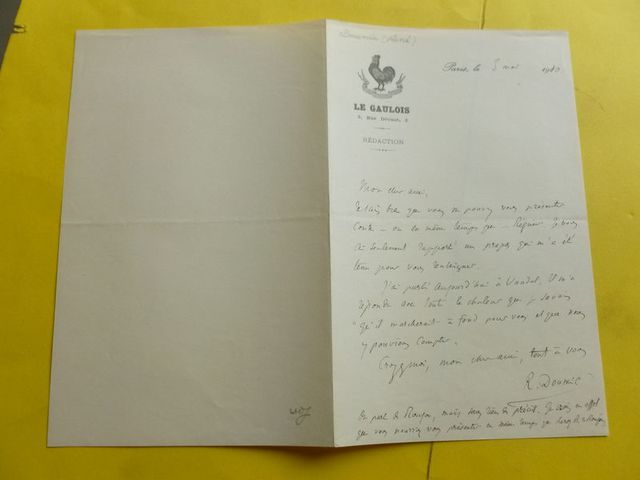 Doumic (René)
Paris, le 5 mai 19
LE GAULOIS
2, Rue Drouot, 2
RÉDACTION
Mon cher ami,
Je sais bien que vous ne pouvez vous présenter
contre — ou en même temps que — Régnier. Je vous
ai seulement rapporté un propos qui m'a été
tenu pour vous renseigner.
J'ai parlé aujourd'hui à Vandal. Il m'a
répondu avec toute la chaleur que je savais
"qu'il marcherait à fond pour vous et que nous
y pouvions compter.
Croyez moi, mon cher ami, tout à vous
R. Doumic
On parle de mais sans rien de précis. Je crois en effet
que vous pourriez vous présenter en même temps que